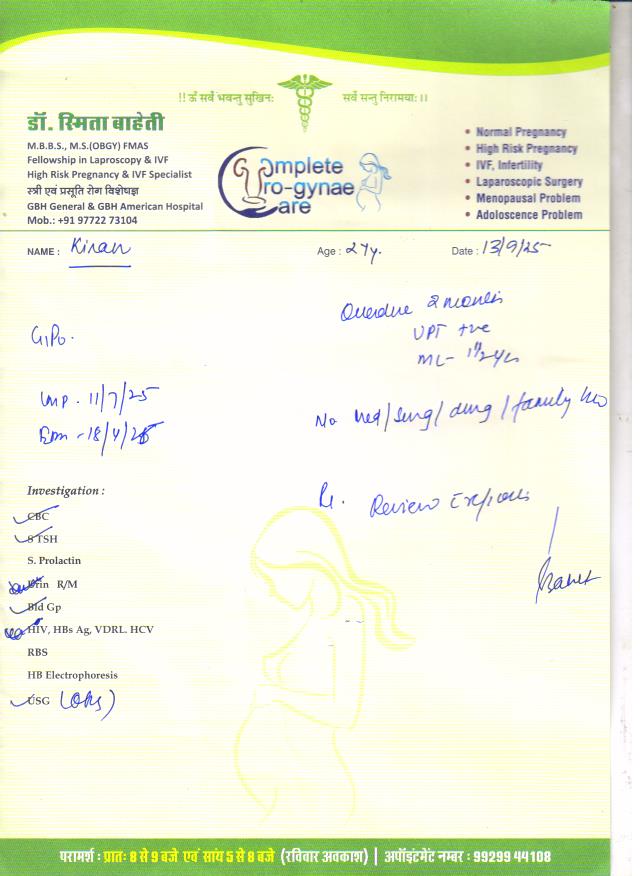 !! ॐ सर्वे भवन्तु सुखिनः सर्वे सन्तु निरामयाः ।।
डॉ. स्मिता बाहेती
M.B.B.S., M.S.(OBGY) FMAS
Fellowship in Laproscopy & IVF
High Risk Pregnancy & IVF Specialist
स्त्री एवं प्रसूति रोग विशेषज्ञ
GBH General & GBH American Hospital
Mob.: +91 97722 73104
Complete
Uro-gynae
Care
• Normal Pregnancy
• High Risk Pregnancy
• IVF, Infertility
• Laparoscopic Surgery
• Menopausal Problem
• Adoloscence Problem
NAME : Kiran Age : 27y. Date : 13/9/25
Overdue 2 months
UPT +ve
ML- 1 1/2 yrs
G1P0.
LMP - 11/7/25
EDD - 18/4/26
No med/surg/drug/family H/o
Investigation :
CBC
S TSH
S. Prolactin
Urin R/M
Bld Gp
HIV, HBs Ag, VDRL. HCV
RBS
HB Electrophoresis
USG (Obs)
Review
परामर्श : प्रातः 8 से 9 बजे एवं सायं 5 से 8 बजे (रविवार अवकाश) | अपॉइंटमेंट नम्बर : 99299 44108